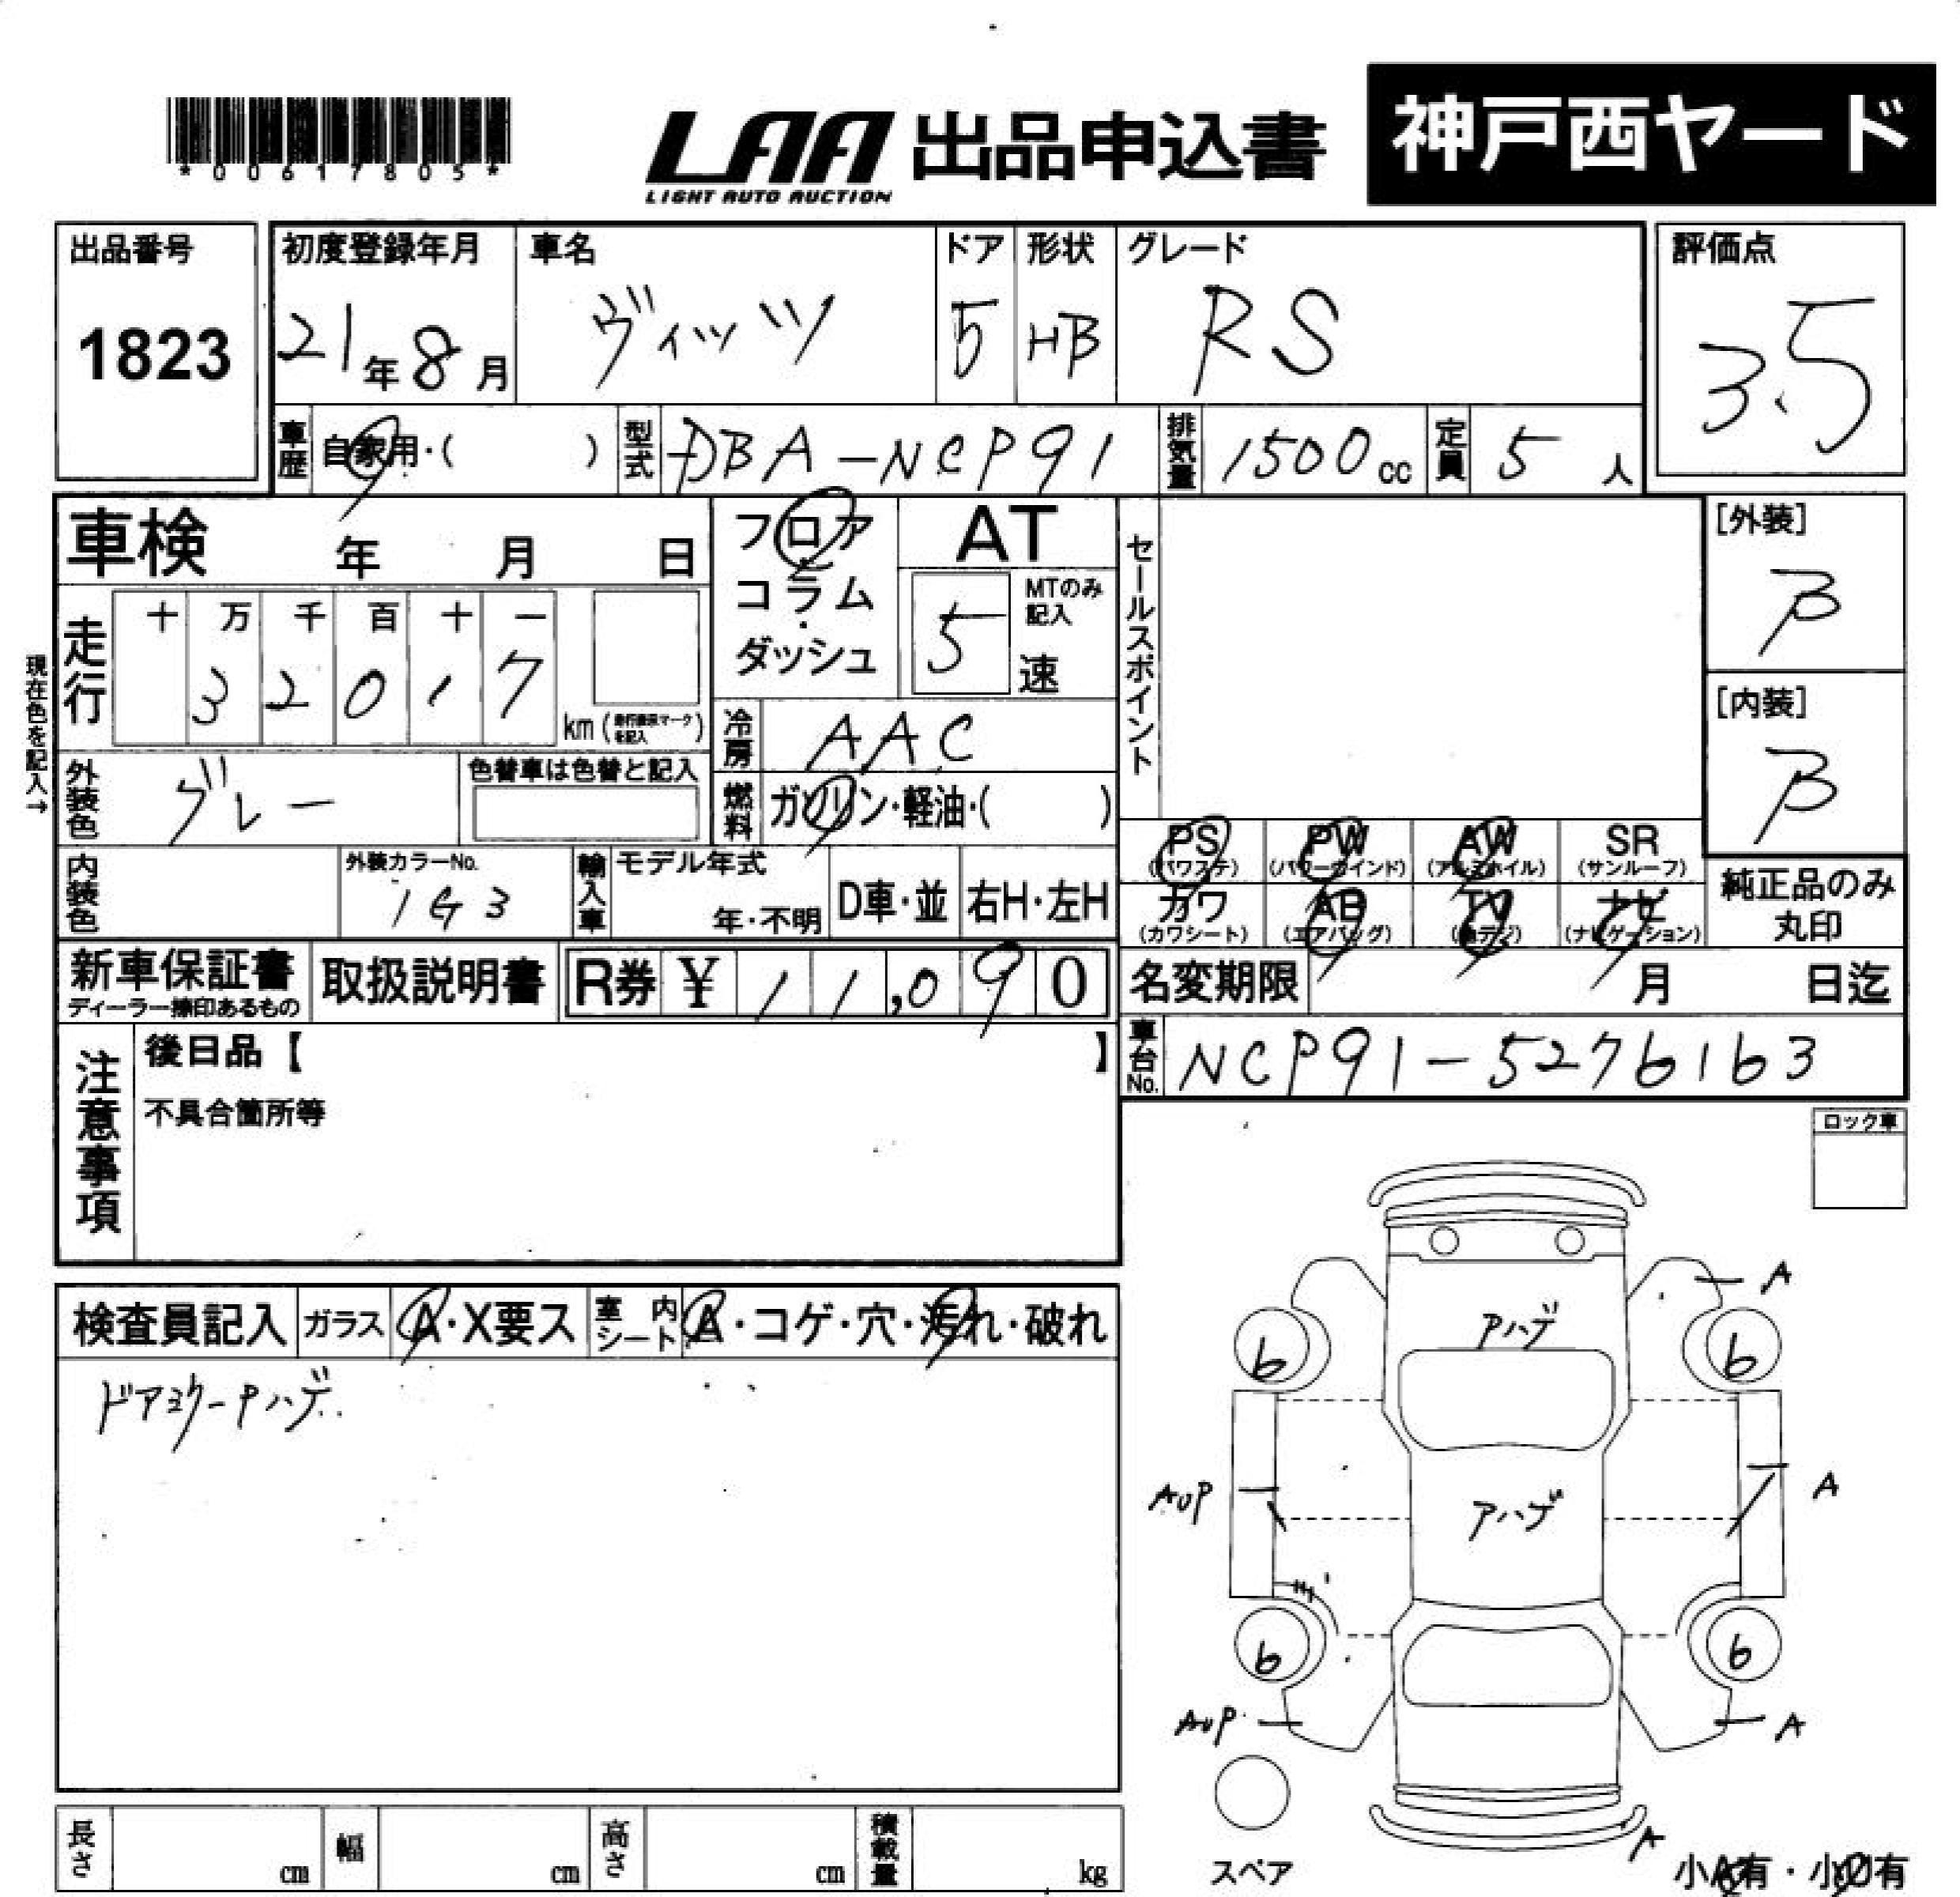 *00617805*
LAA 出品申込書 神戸西ヤード
LIGHT AUTO AUCTION
出品番号 初度登録年月 車名 ドア 形状 グレード 評価点
1823 21年8月 ヴィッツ 5 HB RS 3.5
車歴 自家用・( ) 型式 DBA-NCP91 排気量 1500cc 定員 5人
車検 年 月 日
フロア
コラム
・
ダッシュ
AT
5速
MTのみ
記入
セールスポイント
[外装]
B
[内装]
B
現在色を記入→
走行 十 万 千 百 十 一
3 2 0 1 7
km(走行表示マークを記入)
冷房 AAC
外装色 グレー 色替車は色替と記入
燃料 ガソリン・軽油・( )
PS PW AW SR
(パワステ) (パワーウインド) (アルミホイル) (サンルーフ)
カワ AB TV ナビ
(カワシート) (エアバッグ) (地デジ) (ナビゲーション)
純正品のみ
丸印
内装色 外装カラーNo. 1G3 輸入車 モデル年式 年・不明 D車・並 右H・左H
新車保証書 取扱説明書 R券 ¥ 11,090
ディーラー捺印あるもの
名変期限 月 日迄
車台No. NCP91-5276163
注意事項
後日品【 】
不具合箇所等
ロック車
検査員記入 ガラス A・X要ス 室内シート A・コゲ・穴・汚れ・破れ
ドアミラーPハゲ
A
Pハゲ
6 6
AUP A
Pハゲ
6 6
AUP A
スペア
A
小A有・小U有
長さ cm 幅 cm 高さ cm 積載量 kg